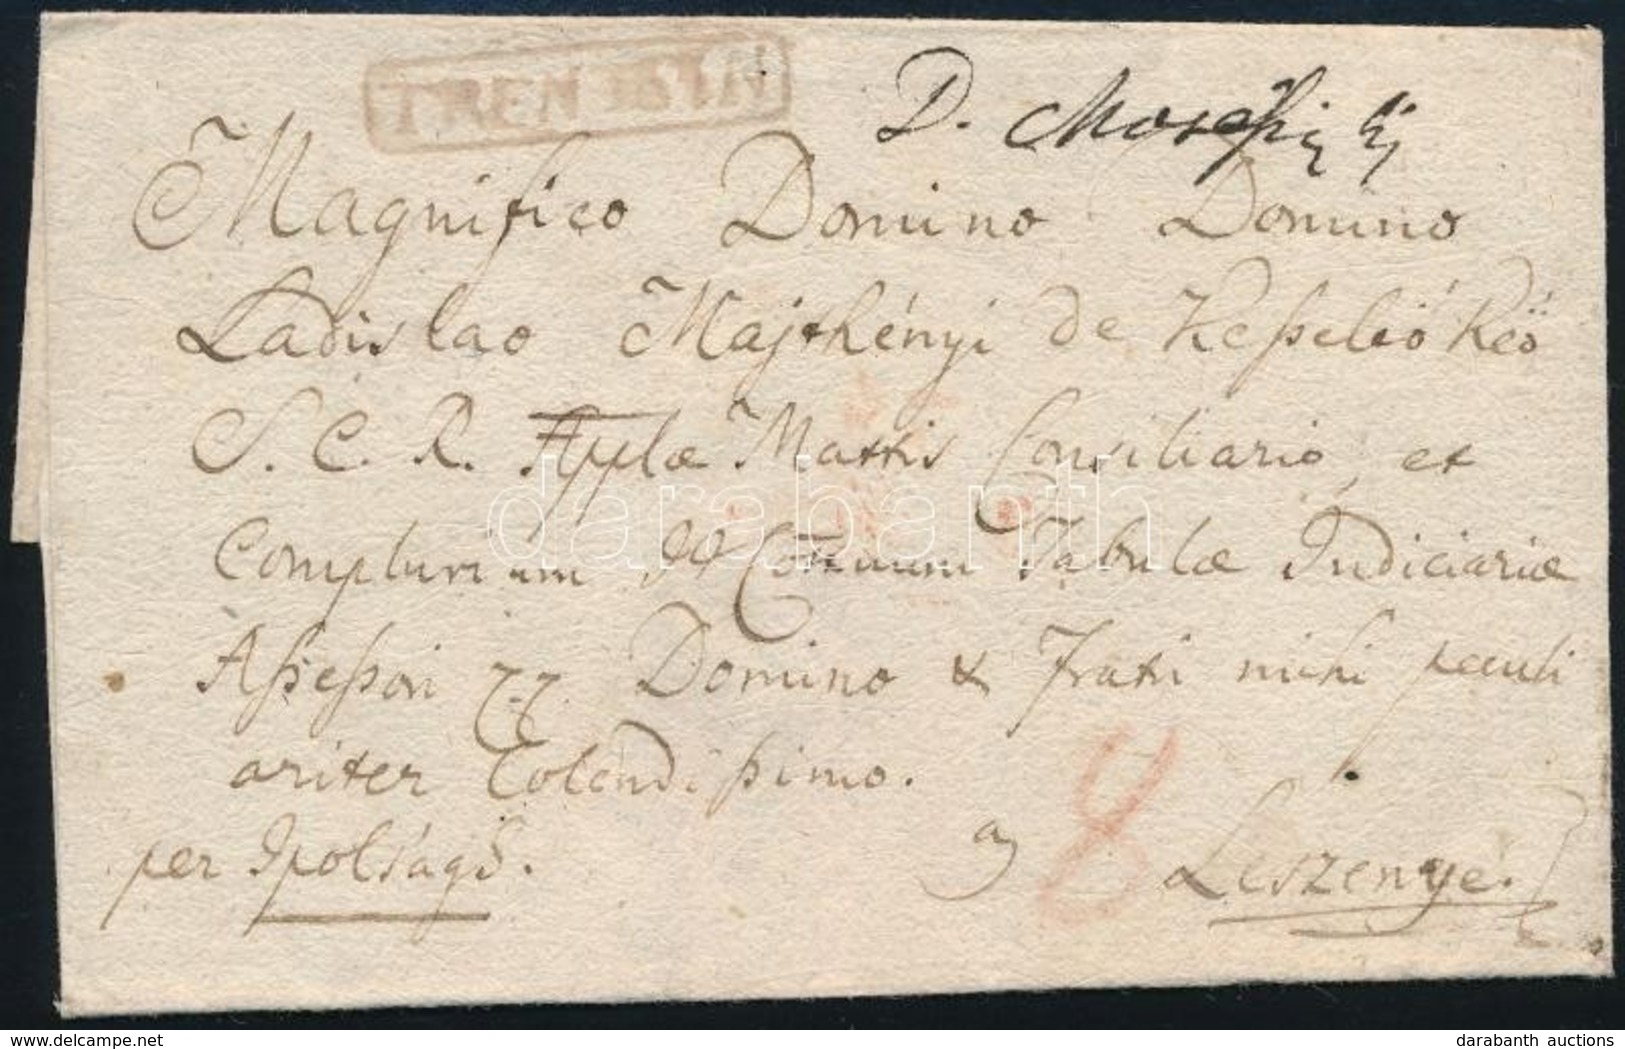 TRENTSIN
D.
Magnifico Domino Domino
Ladislao Majthényi de Keßeleó Keö
S. C. R. Applæ Mattis Consiliario, et
Complurium I. Comitatuum Tabulæ Judiciariæ
Aßeßori Domino & Fratri mihi peculi
ariter Colendißimo.
per Ipolságh.
a 8 Leszenye.
darabanth
delcampe.net
darabanth auctions